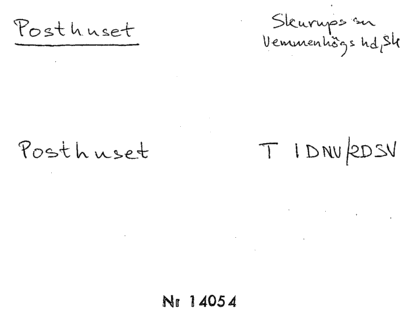 Posthuset
Skurups sn
Vemmenhögs hd, Sk
Posthuset
T 1DNV/2DSV
Nr 14054